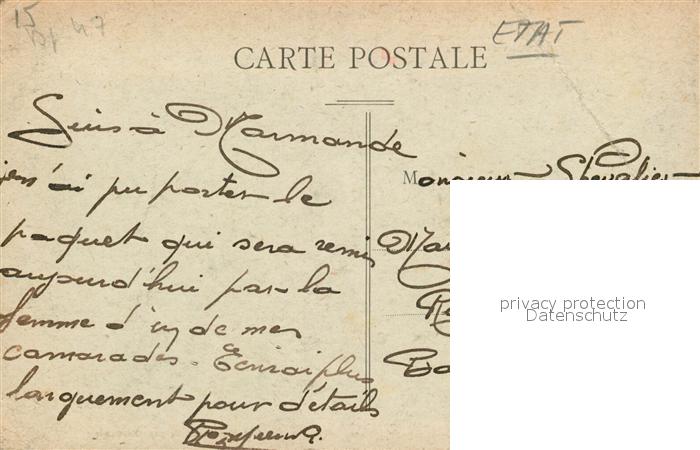 15
47
ETAT
CARTE POSTALE
Suis à Marmande
je n'ai pu porter le
paquet qui sera remis
aujourd'hui par la
femme d'un de mes
camarades. Ecrirai plus
longuement pour détails
Monsieur Chevalier
Mar
Bo
privacy protection
Datenschutz